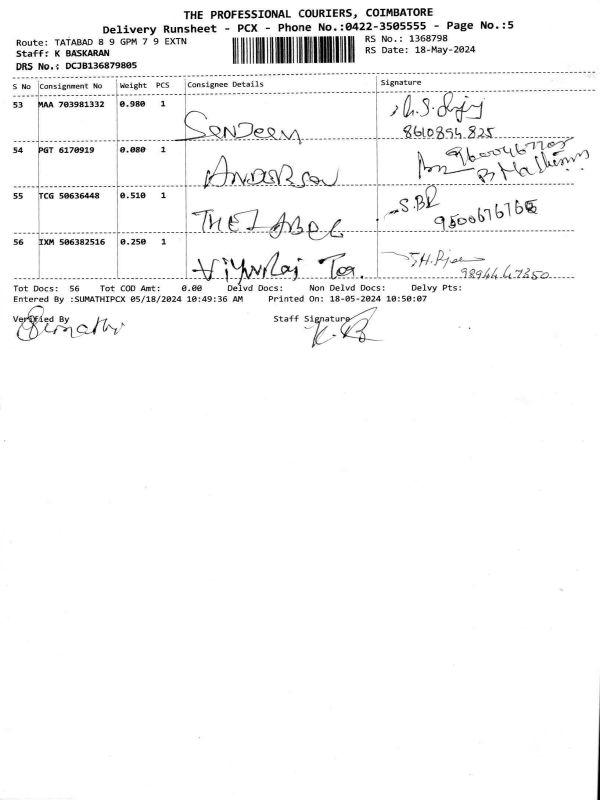 THE PROFESSIONAL COURIERS, COIMBATORE
Delivery Runsheet - PCX - Phone No.:0422-3505555 - Page No.:5
Route: TATABAD 8 9 GPM 7 9 EXTN
RS No.: 1368798
Staff: K BASKARAN
RS Date: 18-May-2024
DRS No.: DCJB136879805
S No Consignment No Weight PCS Consignee Details Signature
53 MAA 703981332 0.980 1
8610894.825
54 PGT 6170919 0.080 1 ANDERSON
55 TCG 50636448 0.510 1 THE LABEL S.BR
9500676765
56 IXM 506382516 0.250 1
98944.47350
Tot Docs: 56 Tot COD Amt: 0.00 Delvd Docs: Non Delvd Docs: Delvy Pts:
Entered By :SUMATHIPCX 05/18/2024 10:49:36 AM Printed On: 18-05-2024 10:50:07
Verified By Staff Signature